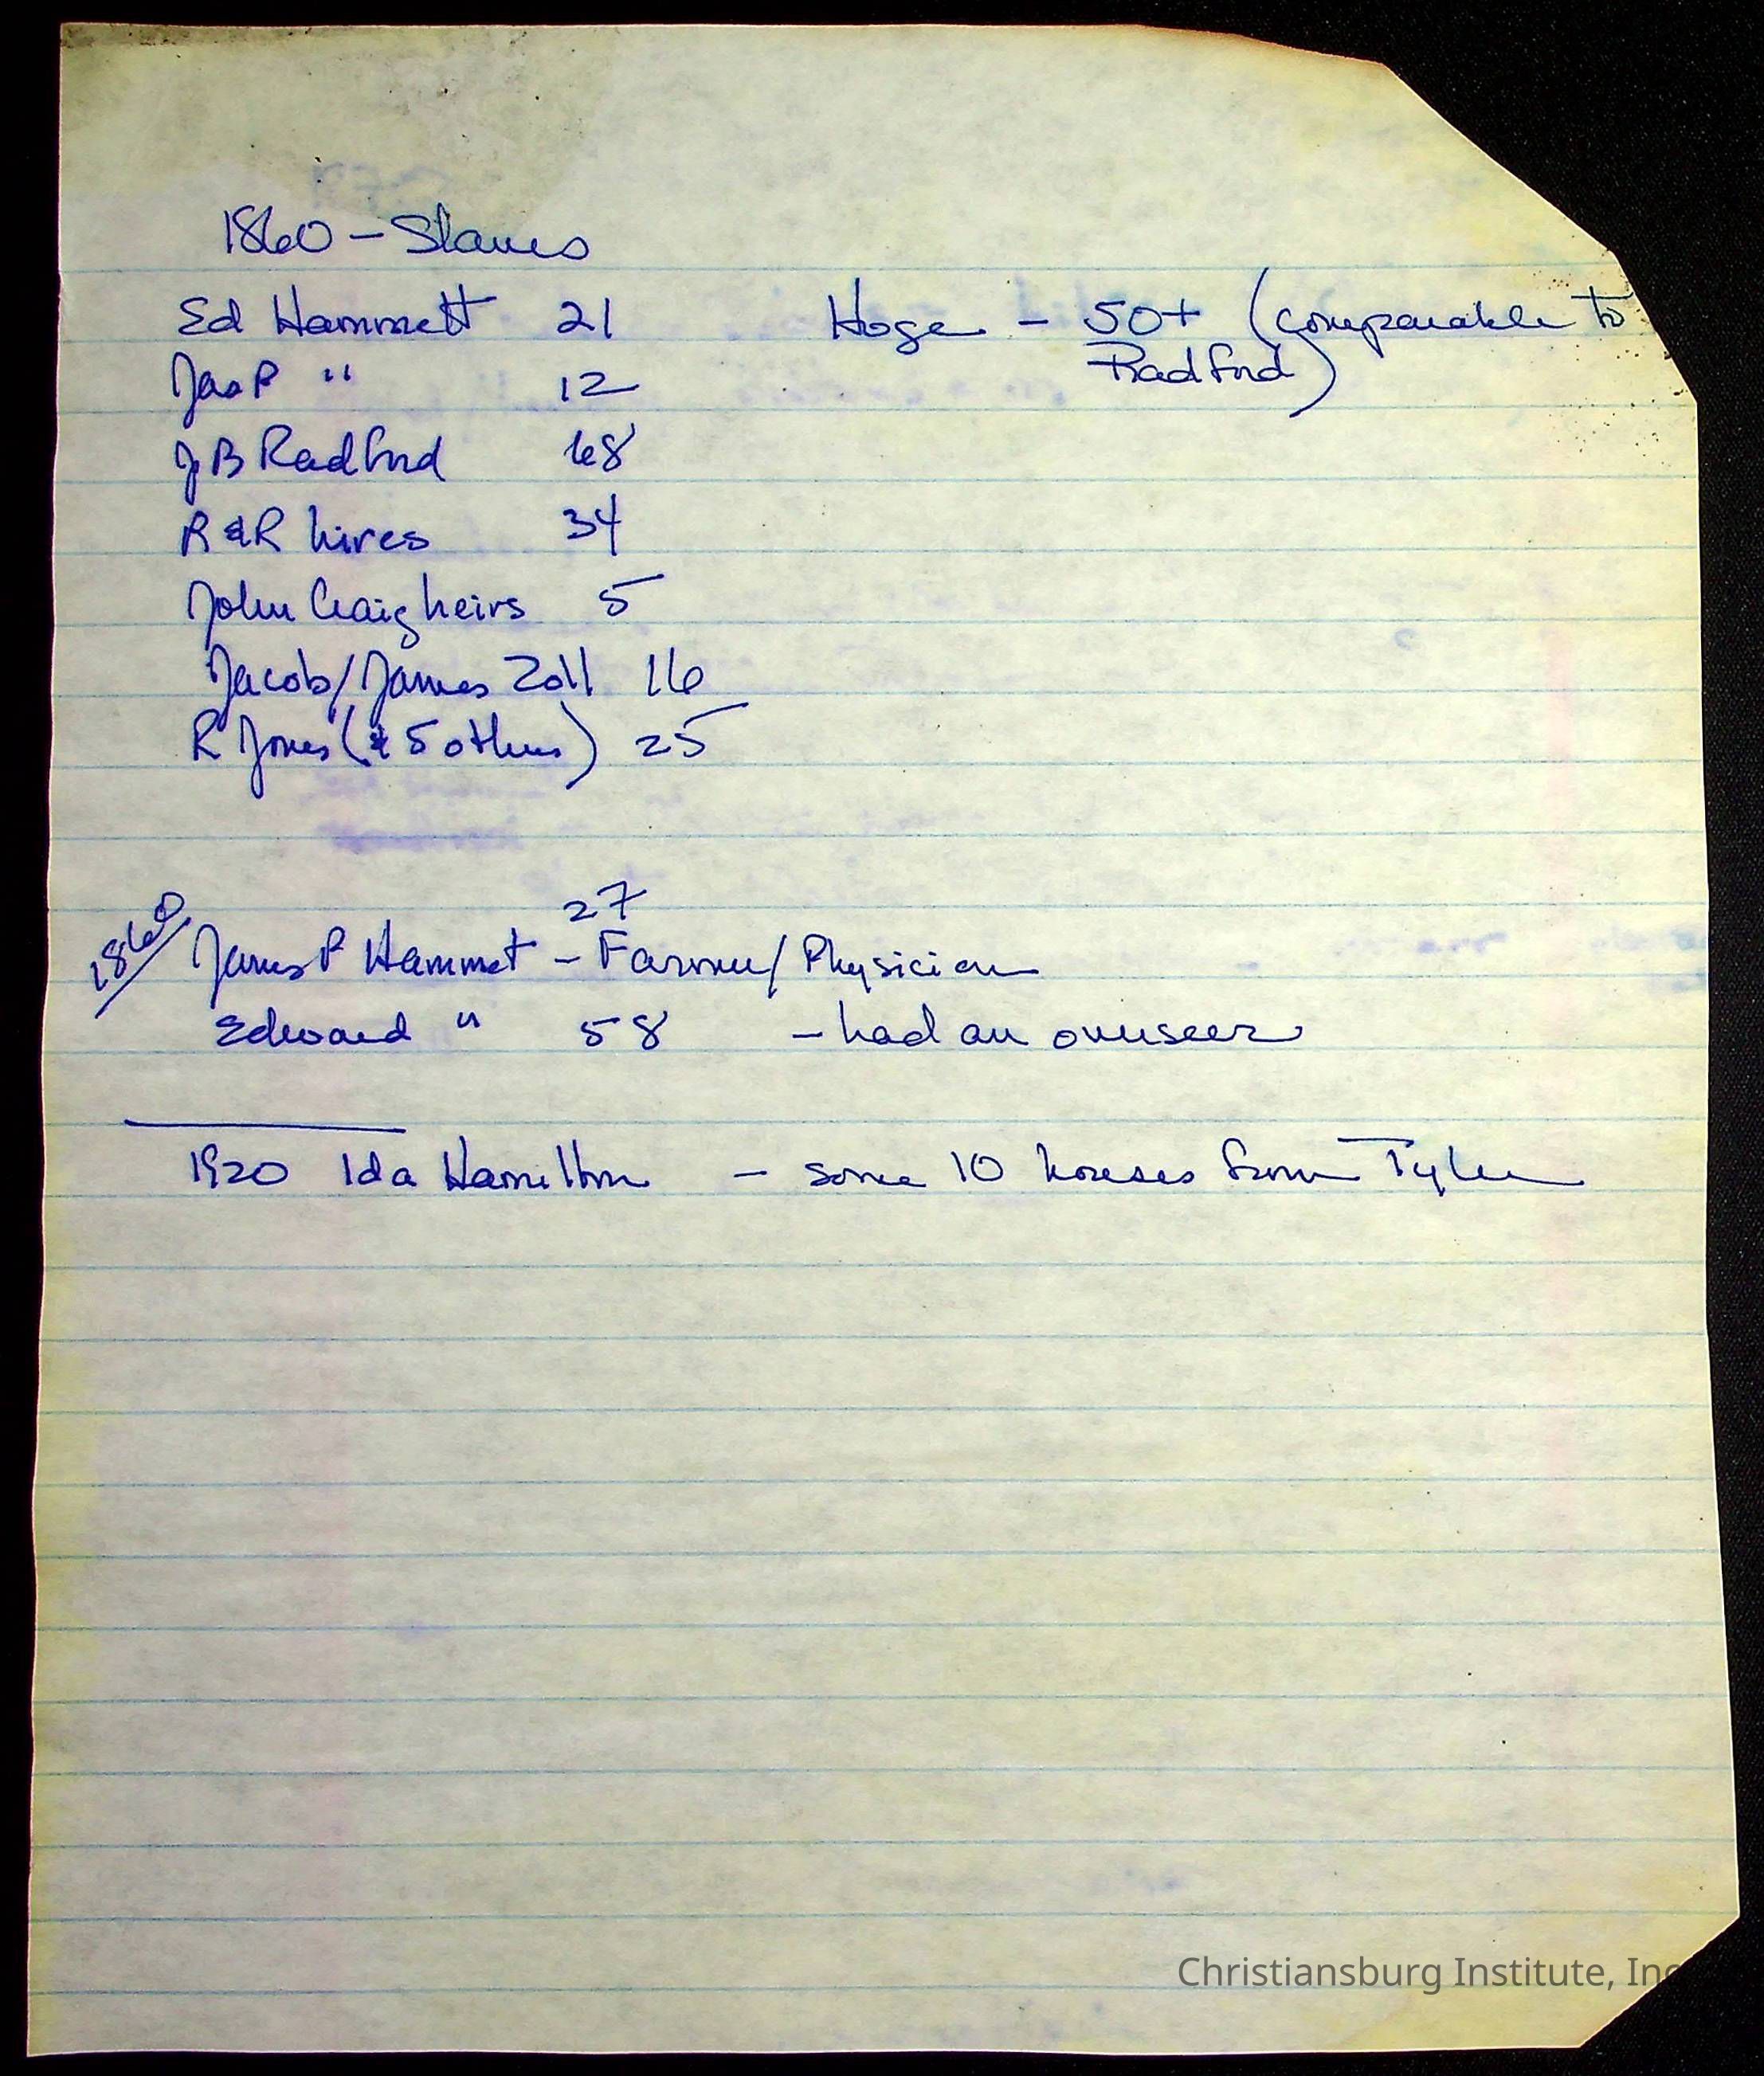 1860 - Slaves
Ed Hammett 21 Hoge - 50+ (comparable to
Radford)
Jas P " 12
JB Radford 68
R&R hires 34
John Craig heirs 5
Jacob/James Zoll 16
R Jones (& 5 others) 25
27
1860 James P Hammet - Farmer/Physician
Edward " 58 - had an overseer
1920 Ida Hamilton - some 10 houses from Tyler
Christiansburg Institute, Inc